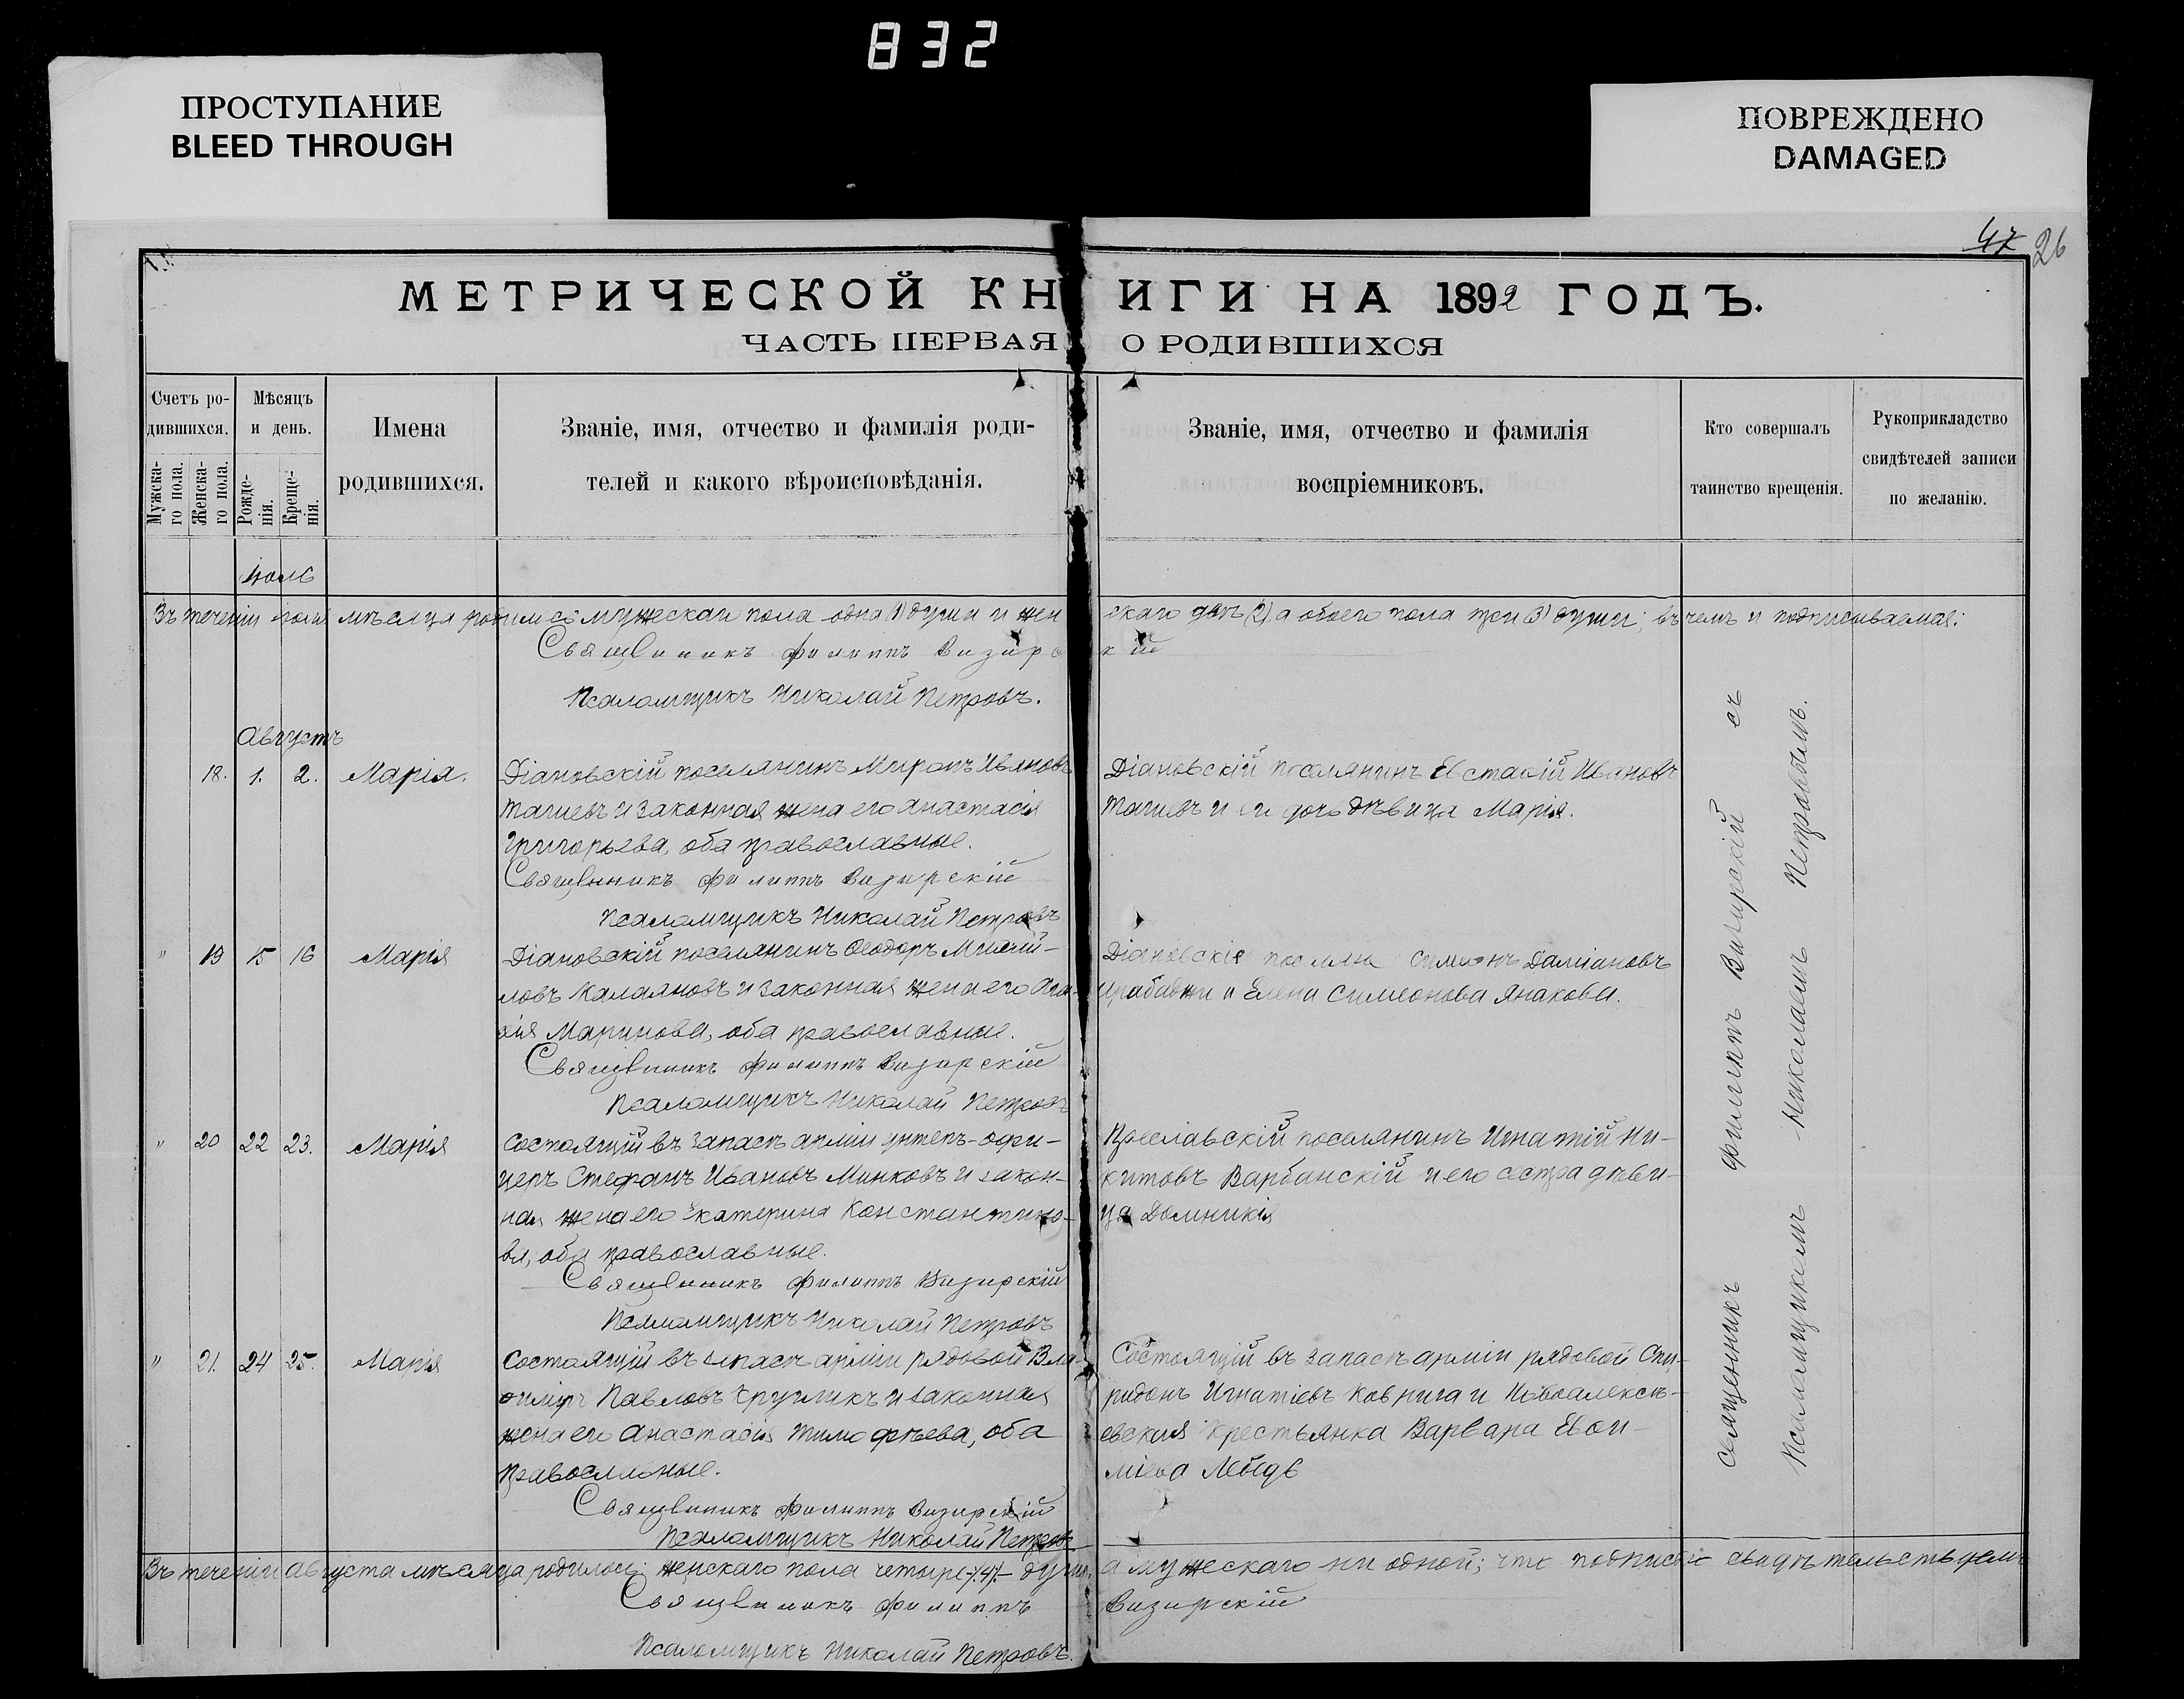 832
ПРОСТУПАНИЕ
BLEED THROUGH
ПОВРЕЖДЕНО
DAMAGED
47 26
МЕТРИЧЕСКОЙ КНИГИ НА 1892 ГОДЪ.
ЧАСТЬ ПЕРВАЯ О РОДИВШИХСЯ
Счетъ ро-
дившихся.
Мужска-
го пола.
Женска-
го пола.
Мѣсяцъ
и день.
Рожде-
нія.
Креще-
нія.
Имена
родившихся.
Званіе, имя, отчество и фамилія роди-
телей и какого вѣроисповѣданія.
Званіе, имя, отчество и фамилія
воспріемниковъ.
Кто совершалъ
таинство крещенія.
Рукоприкладство
свидѣтелей записи
по желанію.
Въ теченіи іюля мѣсяца родилось мужескаго пола одна (1) душа и женскаго двѣ (2), а обоего пола три (3) души; въ чемъ и подписываемся:
Священникъ Филиппъ Визирскій
Псаломщикъ Николай Петровъ.
Августъ
18. 1. 2. Марія.
Діановскій поселянинъ Миронъ Ивановъ
и законная жена его Анастасія
Григорьева, оба православные.
Священникъ Филиппъ Визирскій
Псаломщикъ Николай Петровъ
Діановскій поселянинъ Евстафій Ивановъ
и дочь дѣвица Марія.
" 19 15 16 Марія
Діановскій поселянинъ Ѳеодоръ Михай-
ловъ Калаяновъ и законная жена его
Маринова, оба православные.
Священникъ Филиппъ Визирскій
Псаломщикъ Николай Петровъ
Діановскіе поселяне Симеонъ Даміановъ
и Елена Симеонова Янакова.
" 20 22 23. Марія
Состоящій въ запасѣ арміи унтеръ-офи-
церъ Стефанъ Ивановъ Минковъ и закон-
ная жена его Екатерина Константино-
ва, оба православные.
Священникъ Филиппъ Визирскій
Псаломщикъ Николай Петровъ
Преславскій поселянинъ Игнатій Ни-
китовъ Варбанскій и его сестра дѣви-
ца Домникія
" 21. 24 25. Марія
Состоящій въ запасѣ арміи рядовой Вла-
диміръ Павловъ Кругликъ и законная
жена его Анастасія Тимофѣева, оба
православные.
Священникъ Филиппъ Визирскій
Псаломщикъ Николай Петровъ
Состоящій въ запасѣ арміи рядовой Спи-
ридонъ Игнатіевъ Ковнига и Новоалексѣ-
евская крестьянка Варвара Евѳи-
міева Лебедь
Священникъ Филиппъ Визирскій съ
Псаломщикомъ Николаемъ Петровымъ.
Въ теченіи августа мѣсяца родилось: женскаго пола четыре (4) души, а мужескаго ни одной; что подписью свидѣтельствуемъ
Священникъ Филиппъ Визирскій
Псаломщикъ Николай Петровъ.